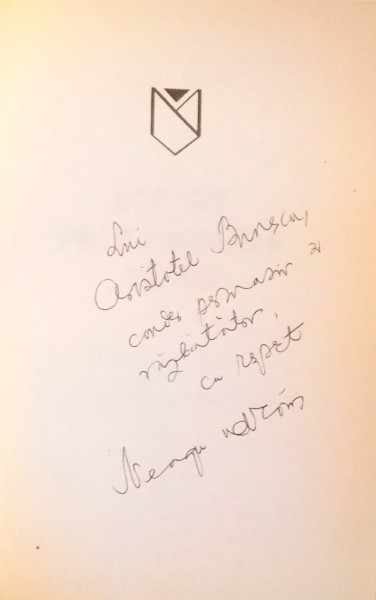 Lui
Aristotel Bunescu,
condei persuasiv și
răzbătător,
cu respect
Neagu Udroiu